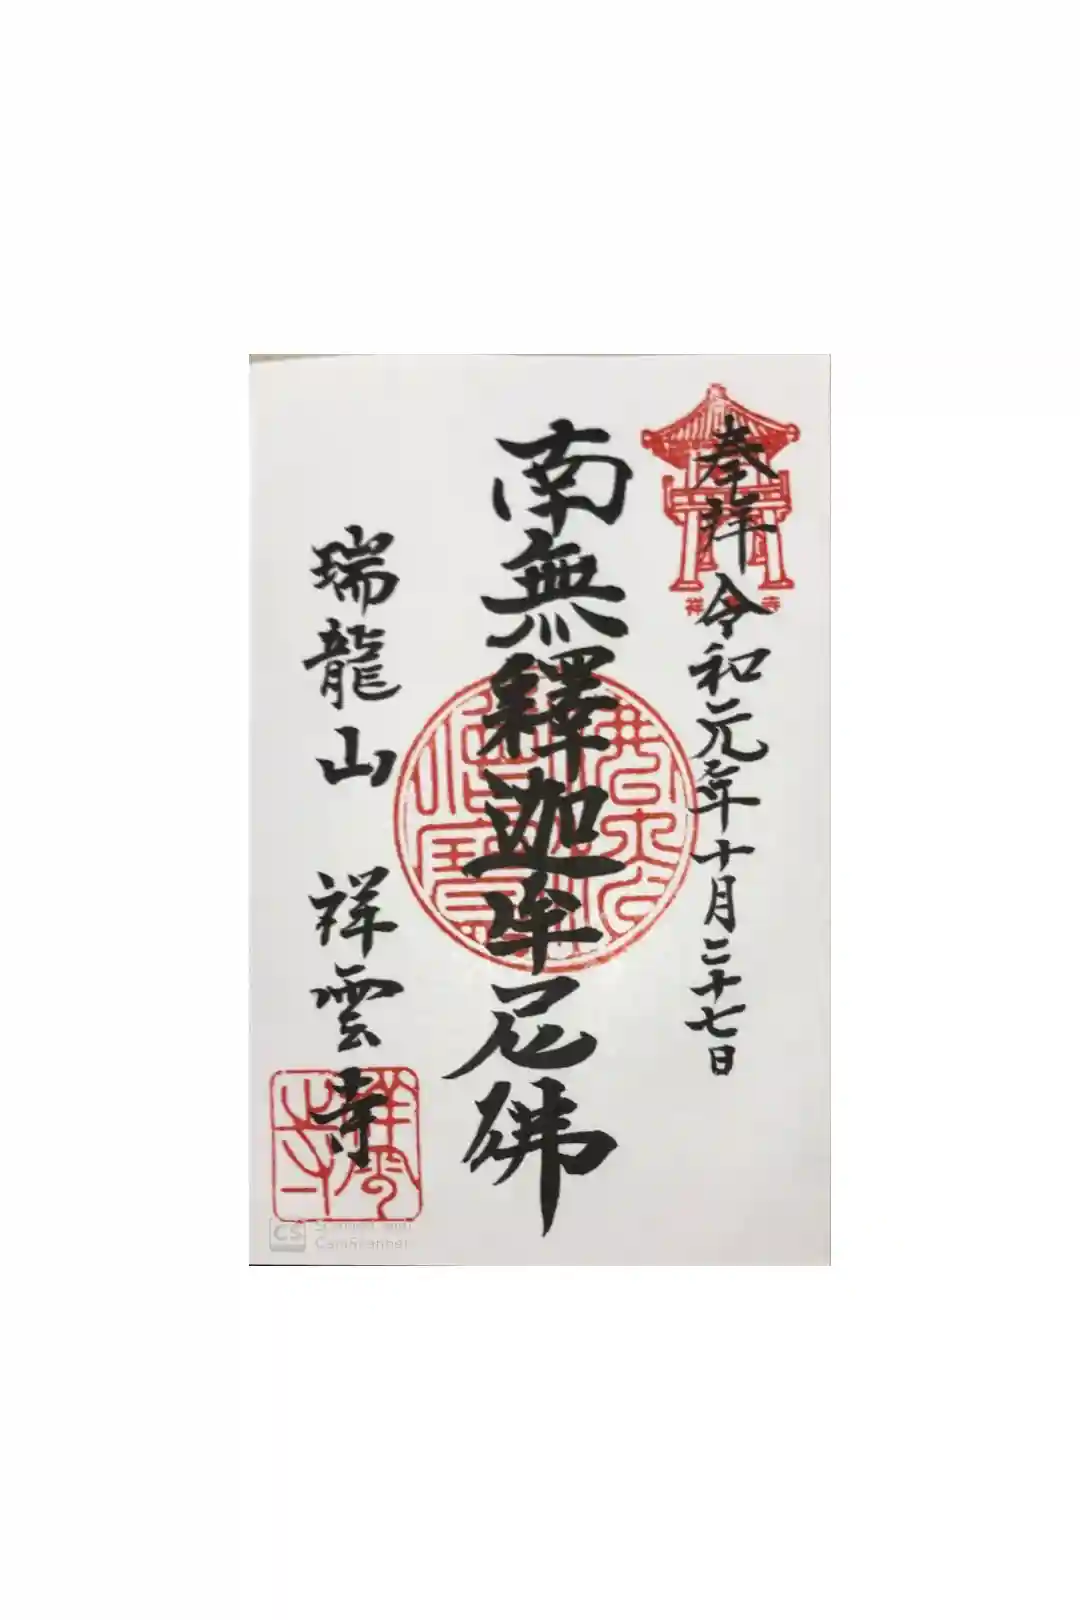 奉拝 令和元年十月二十七日
南無釋迦牟尼佛
瑞龍山 祥雲寺
祥 寺
CS Scanned with
CamScanner